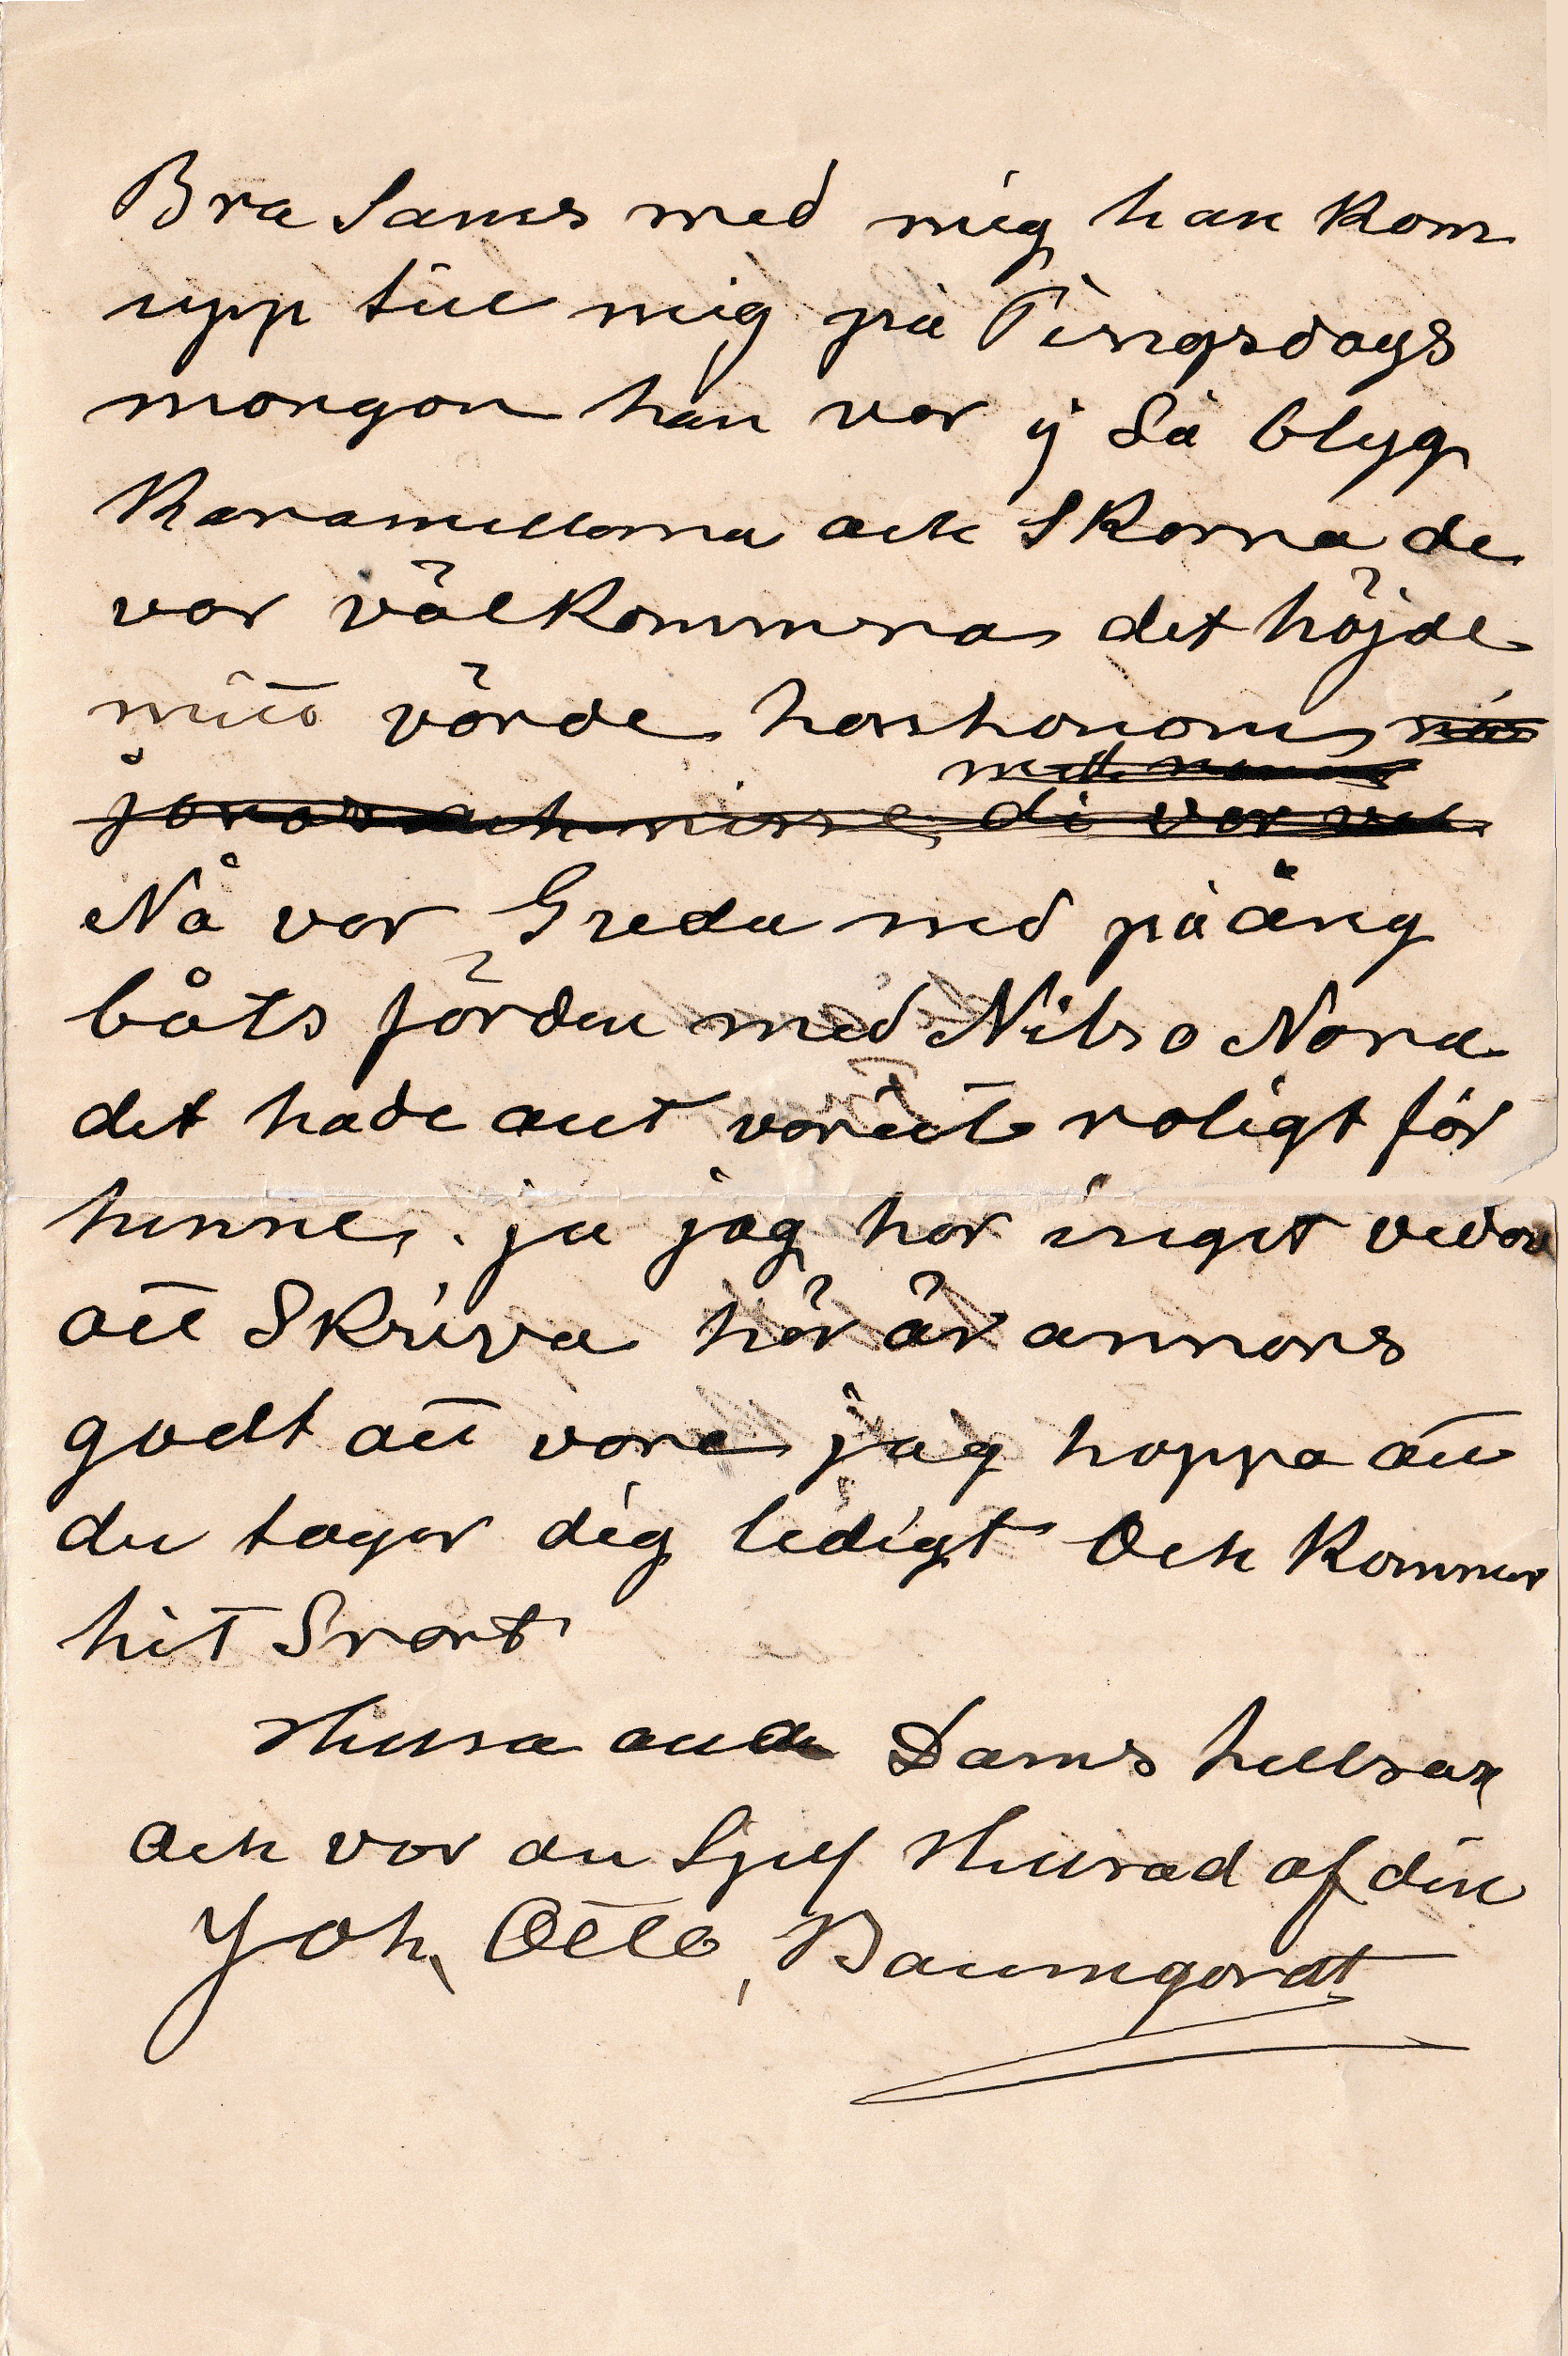 Bra Sams med mig han kom
upp till mig på Pingsdags
morgon han var ij Så blyg
Karamellorna och Skorna de
var välkommna det höjde
mitt värde hos honom
di var
Nå var Greda med på äng
båts färden med Nils o Nora
det hade allt varit roligt för
henne. ja jag har inget vidare
att Skriva här är annars
godt att vara jag hoppa att
du tager dig ledigt Och kommer
hit Snart
Hellsa alla Dams hellsar
och var du Sjelf Hellsad af din
Joh, Otto, Baumgardt